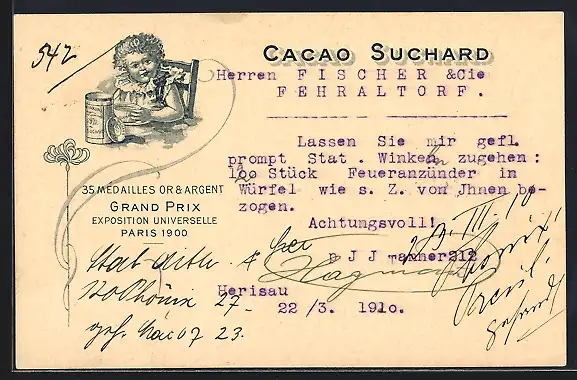 542
CACAO SUCHARD
Herren FISCHER &Cie
FEHRALTORF.
Lassen Sie mir gefl.
prompt Stat. Winken zugehen:
100 Stück Feueranzünder in
Würfel wie s. Z. von Jhnen be-
zogen.
Achtungsvoll!
35 MÉDAILLES OR & ARGENT
GRAND PRIX
EXPOSITION UNIVERSELLE
PARIS 1900
p J J Tanner212
Herisau
22 /3. 1910.
29. III. 10
27-
23.